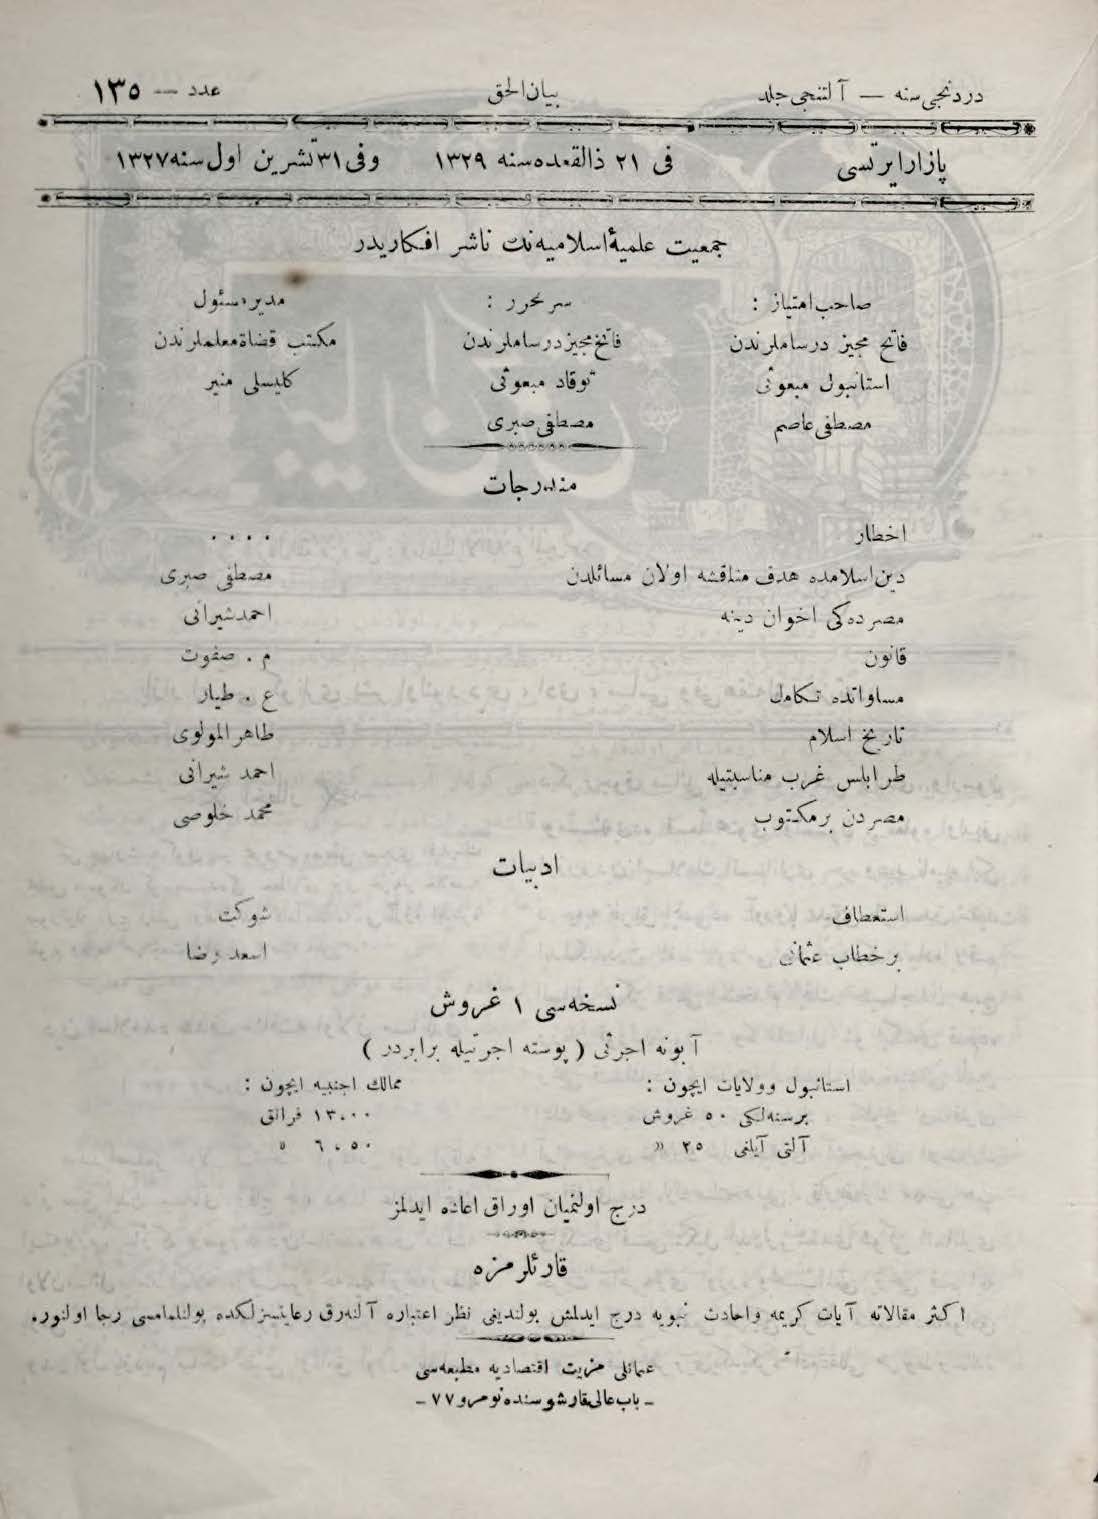 دردنجی سنه — آلتنجی جلد بیان الحق عدد — ١٣٥
پازار ایرتسی فی ٢١ ذالقعده سنه ١٣٢٩ وفی ٣١ تشرین اول سنه ١٣٢٧
جمعیت علمیۀ اسلامیه نك ناشر افكاریدر
صاحب امتیاز : سر محرر : مدیر مسئول
فاتح مجیز درسعاملرندن فاتح مجیز درسعاملرندن مكتب قضاة معلملرندن
استانبول مبعوثی توقاد مبعوثی كلیسلی منیر
مصطفی عاصم مصطفی صبری
مندرجات
اخطار ....
دین اسلامده هدف مناقشه اولان مسائلدن مصطفی صبری
مصرده كی اخوان دینه احمد شیرانی
قانون م . صفوت
مساواتده تكامل ع . طیار
تاریخ اسلام طاهر المولوی
طرابلس غرب مناسبتیله احمد شیرانی
مصردن بر مكتوب محمد خلوصی
ادبیات
استعطاف شوكت
بر خطاب عثمانی اسعد رضا
نسخه سی ١ غروش
آبونه اجرتی ( پوسته اجرتیله برابردر )
استانبول وولایات ایچون : ممالك اجنبیه ایچون :
برسنه لكی ٥٠ غروش ١٣،٠٠ فرانق
آلتی آیلغی ٢٥ « ٦،٥٠ «
درج اولنمیان اوراق اعاده ایدلمز
قارئلرمزه
اكثر مقالاته آیات كریمه واحادث نبویه درج ایدلمش بولندیغی نظر اعتباره آلنه رق رعایتسزلكده بولنلمامسی رجا اولنور.
عثمانلی مزیت اقتصادیه مطبعه سی
- باب عالی قارشوسنده نومرو ٧٧ -